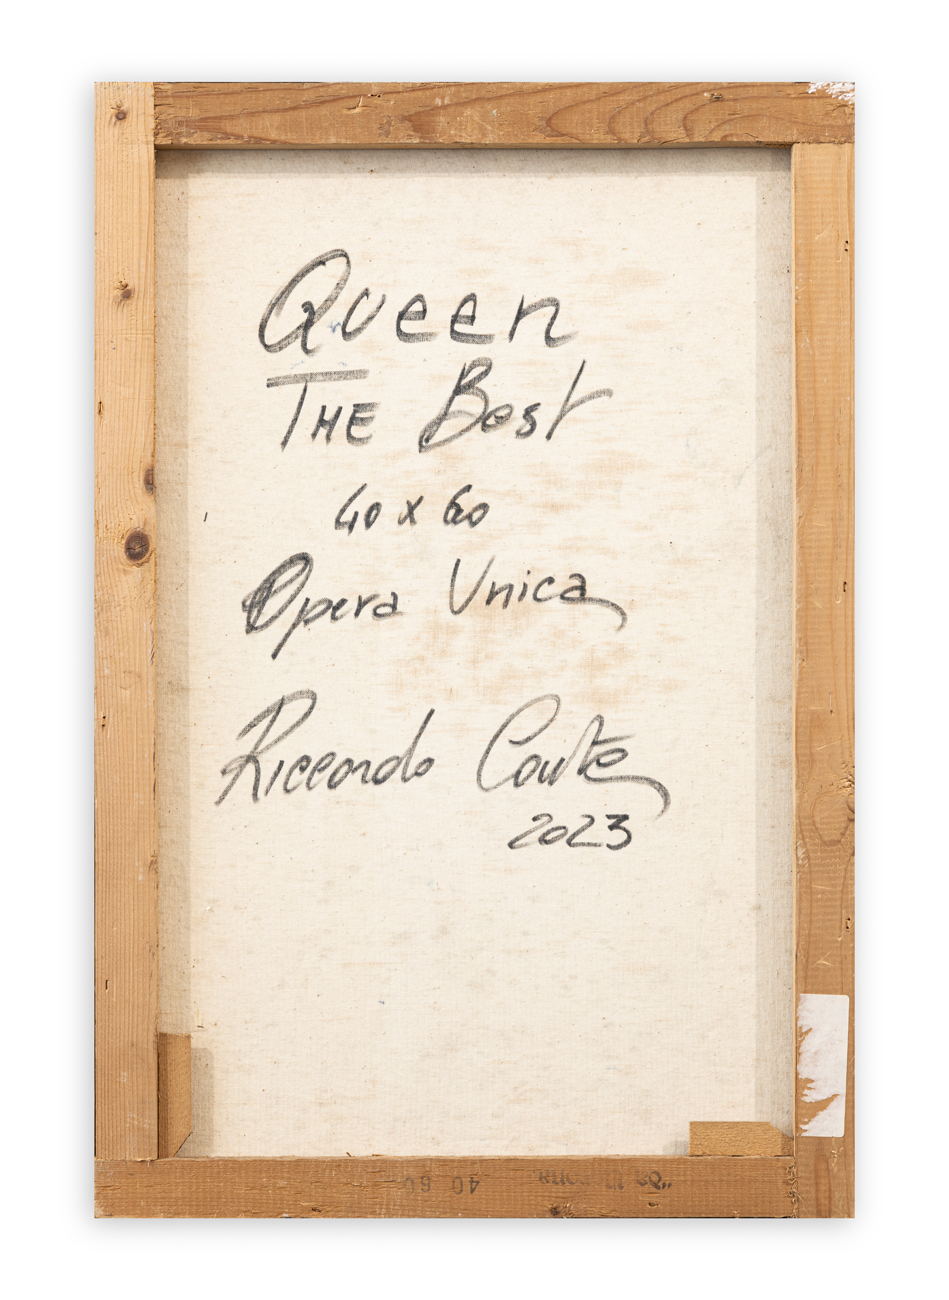 Queen
THE Best
40 x 60
Opera Unica
Riccardo Conte
2023
40 60